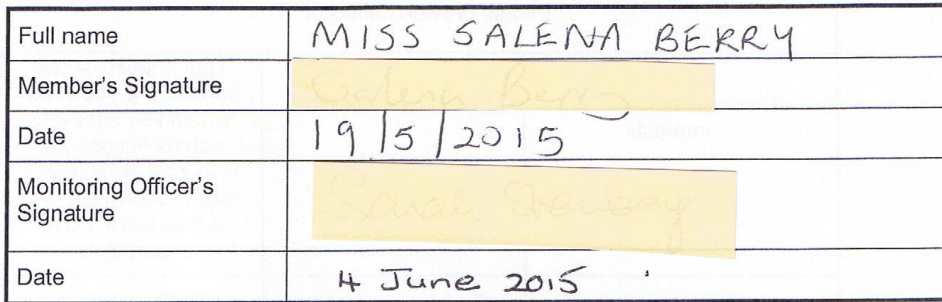 Full name MISS SALENA BERRY
Member's Signature Salena Berry
Date 19/5/2015
Monitoring Officer's
Signature Sarah
Date 4 June 2015